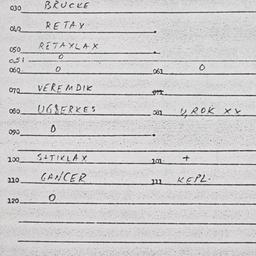 030 BRUCKE
040 RETAY
050 RETAYLAX
051 0
060 0 061 0
070 VEREMDIK
080 UGSERKES 081 ROK XX
090 0
100 S+TIKLAX 101 +
110 GANCER 111 KEPL.
120 0